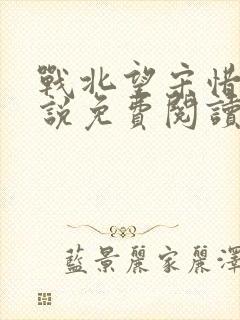 戰北望宋惜
說免費閱讀
藍景麗家麗澤